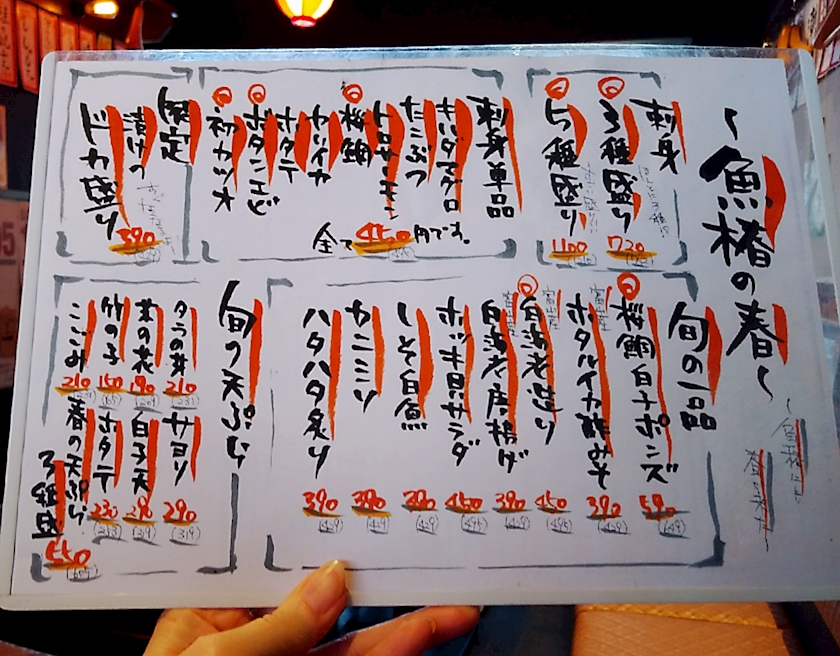 ～魚椿の春～
刺身
3種盛り
720
5種盛り
1100
刺身単品
キハダマグロ
たこぶつ
トロサーモン
桜鯛
ヤリイカ
ホタテ
ボタンエビ
初カツオ
全て450円です。
限定
漬けの
ドカ盛り
390
旬の一品
桜鯛白子ポンズ
590
(649)
富山産
ホタルイカ酢みそ
390
(429)
富山産
白海老造り
450
(495)
富山産
白海老唐揚げ
390
(429)
ホッキ貝サラダ
450
(495)
しそ白魚
390
(429)
カニミソ
390
(429)
ハタハタ炙り
390
(429)
旬の天ぷら
タラの芽
210
(231)
菜の花
190
(209)
竹の子
150
(165)
こごみ
210
(231)
サヨリ
290
(319)
白子天
290
(319)
ホタテ
230
(253)
春の天ぷら
3種盛
550
(605)